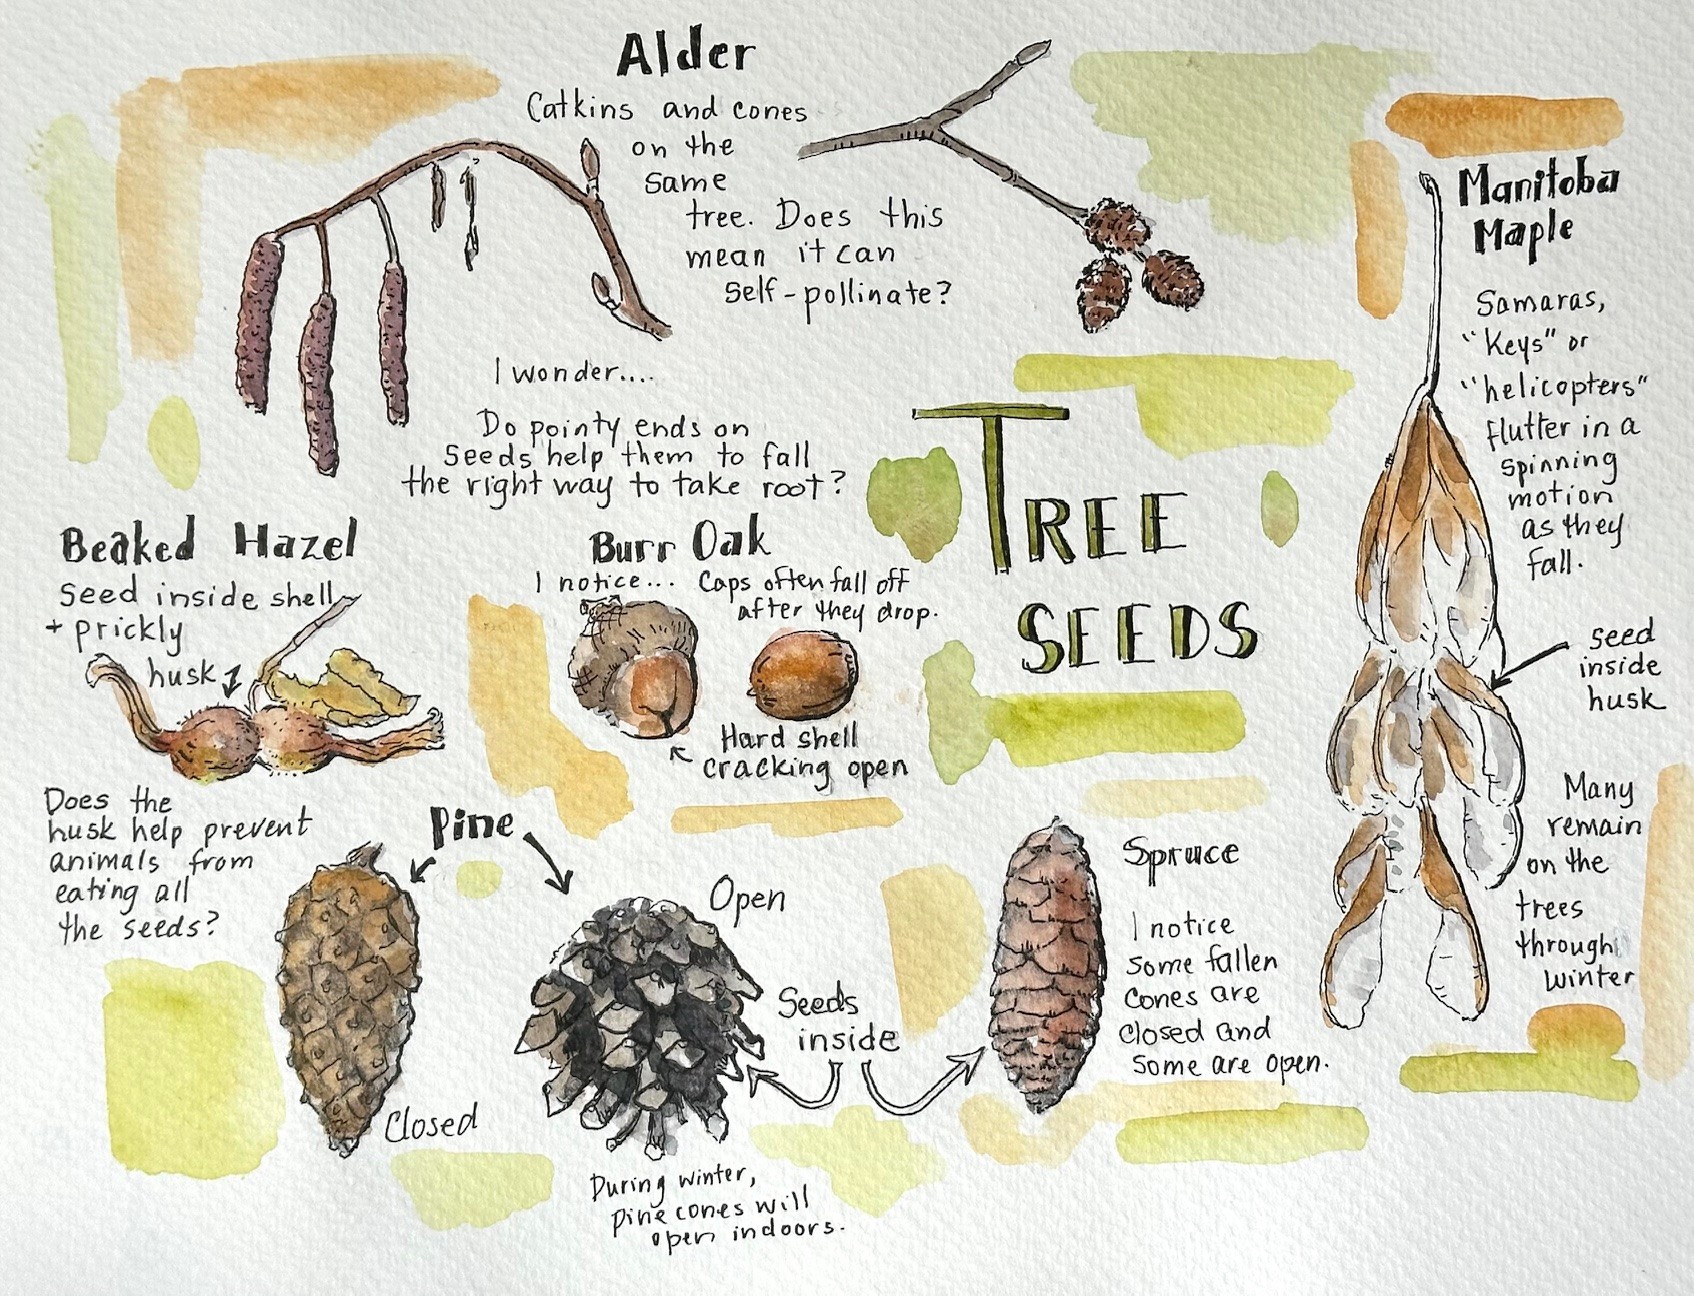 Alder
Catkins and cones
on the
same
tree. Does this
mean it can
self-pollinate?
I wonder....
Do pointy ends on
seeds help them to fall
the right way to take root?
TREE
SEEDS
Manitoba
Maple
Samaras,
"Keys" or
"helicopters"
flutter in a
spinning
motion
as they
fall.
seed
inside
husk
Many
remain
on the
trees
through
winter
Beaked Hazel
Seed inside shell
+ prickly
husk
Does the
husk help prevent
animals from
eating all
the seeds?
Burr Oak
I notice... Caps often fall off
after they drop.
Hard shell
cracking open
Pine
Closed
Open
Seeds
inside
During winter,
pine cones will
open indoors.
Spruce
I notice
some fallen
cones are
closed and
some are open.